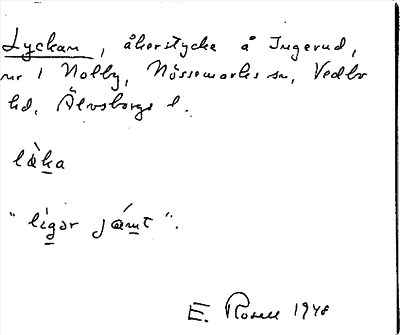 Lyckan, åkerstycke å Ingerud,
nr 1 Nolby, Nössemarks sn, Vedbo
hd, Älvsborgs l.
lạ̀ka
"ligər jámt".
E. Rosell 1948